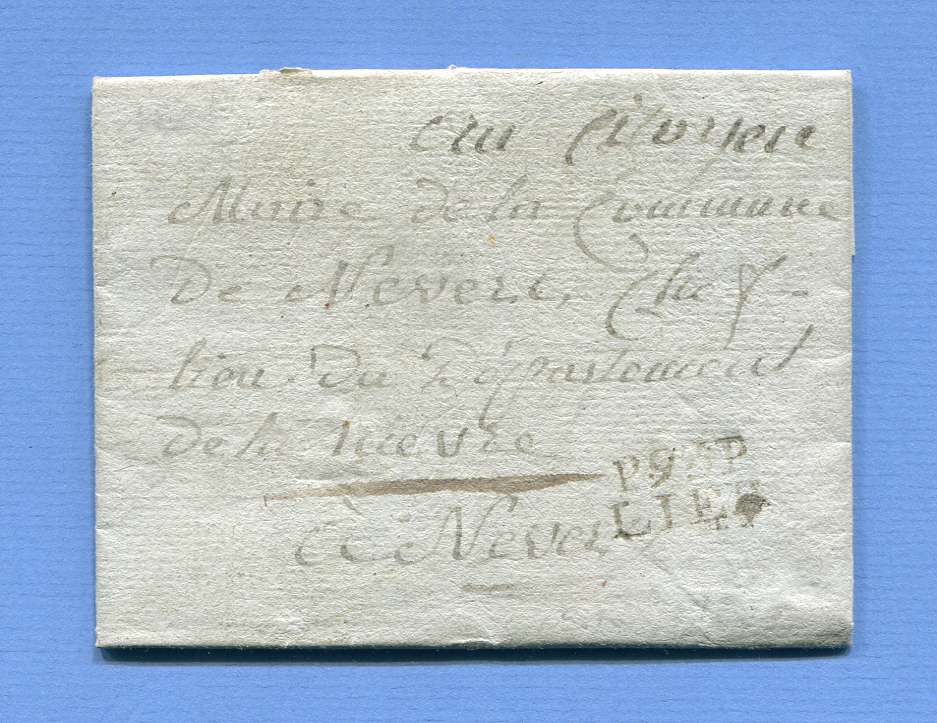 au Citoyen
Maire de la Commune
De Nevers, Chef-
lieu Du Département
de la Nièvre
P99P
LIEG
à Nevers